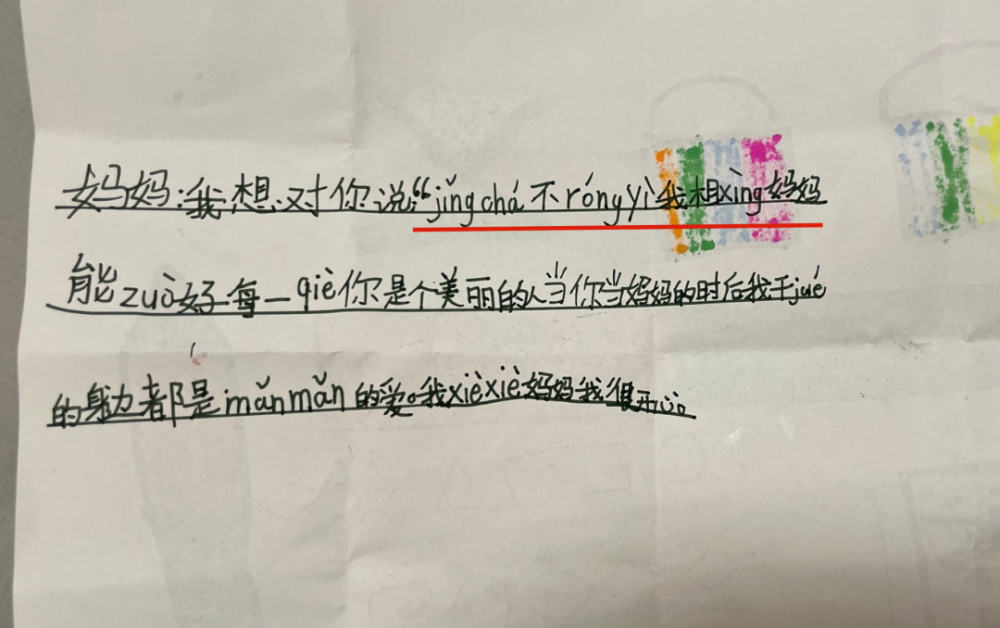 妈妈:我想对你说:“jǐngchá不róngyì我相xìng妈妈
能zuò好每一qiè你是个美丽的人当你当妈妈的时后我干jué
的身边都是mǎnmǎn的爱。我xièxiè妈妈我很开心。